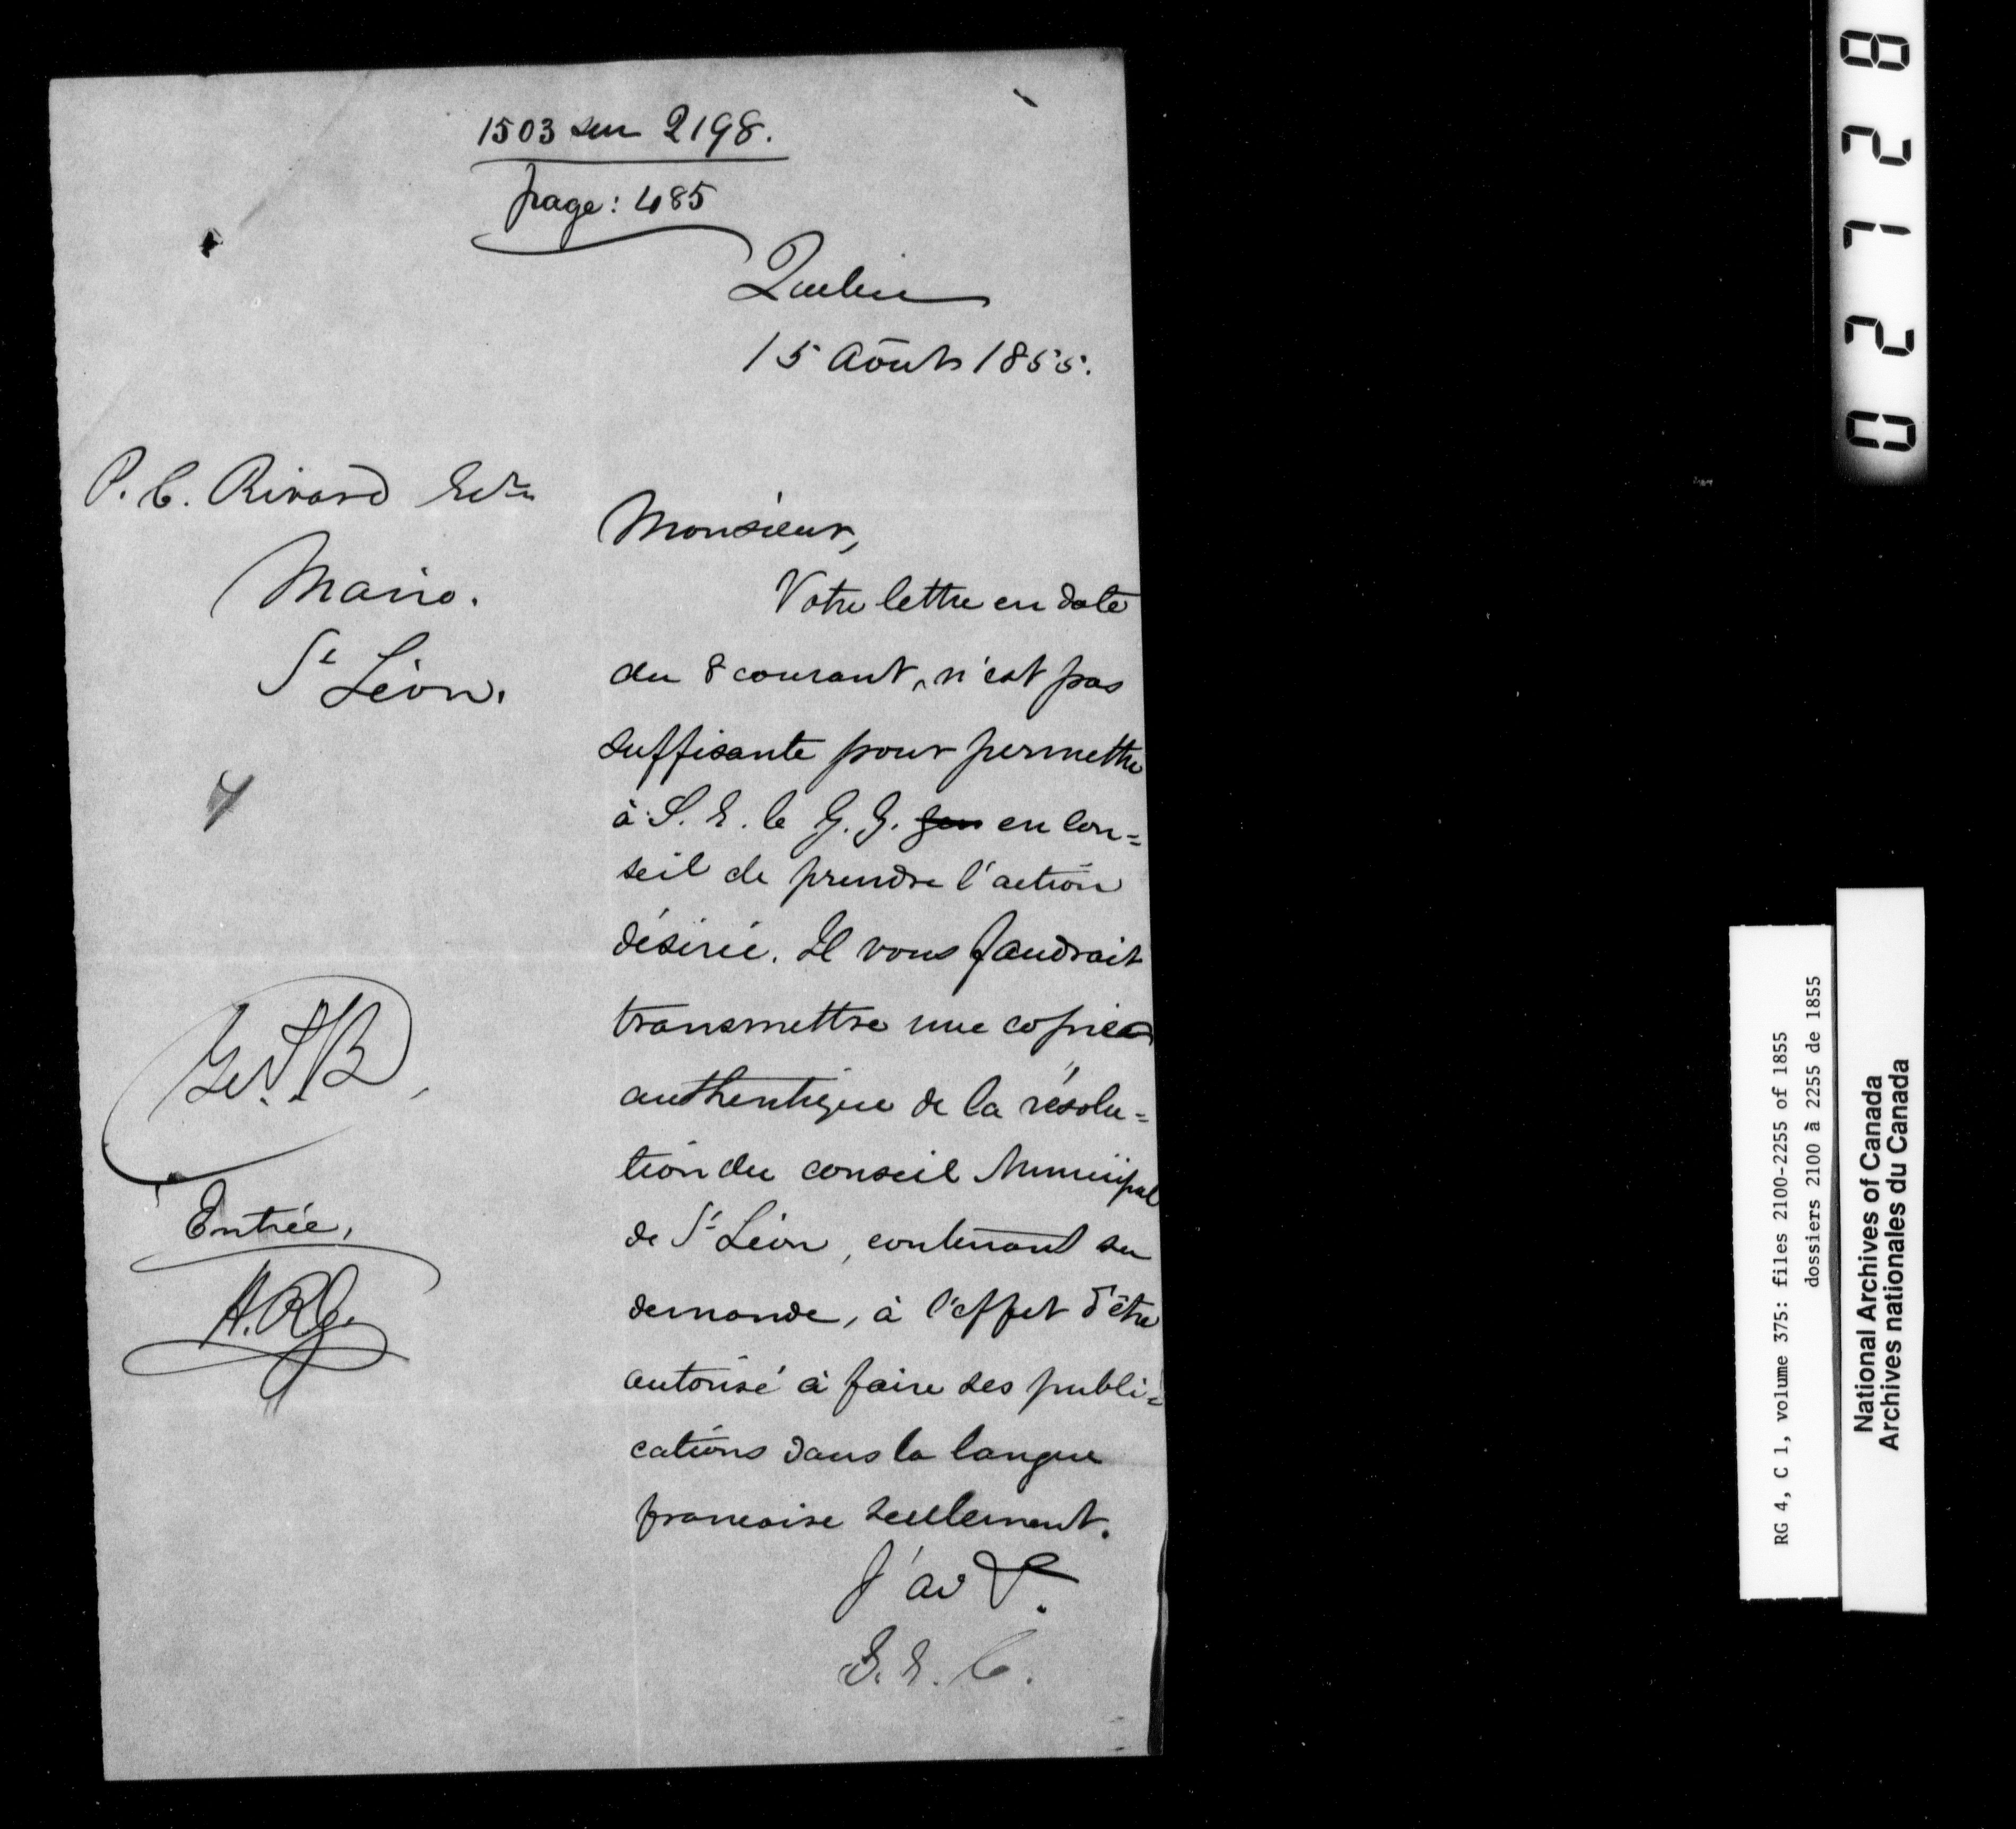 1503 sur 2198.
page: 485
Québec
15 Août 1855.
P. C. Rivard Ecr
Maire.
St Léon.
Monsieur,
Votre lettre en date
du 8 courant, n'est pas
suffisante pour permettre
à S. E. le G. G. en Con=
seil de prendre l'action
désirée. Il vous faudrait
transmettre une copie
authentique de la résolu=
tion du conseil Municipal
de St Léon, contenant sa
demande, à l'effet d'être
autorisé à faire ses publi=
cations dans la langue
francaise seulement.
J'ai &.
G. E. C.
Entrée,
02728
RG 4, C 1, volume 375: files 2100-2255 of 1855
dossiers 2100 à 2255 de 1855
National Archives of Canada
Archives nationales du Canada